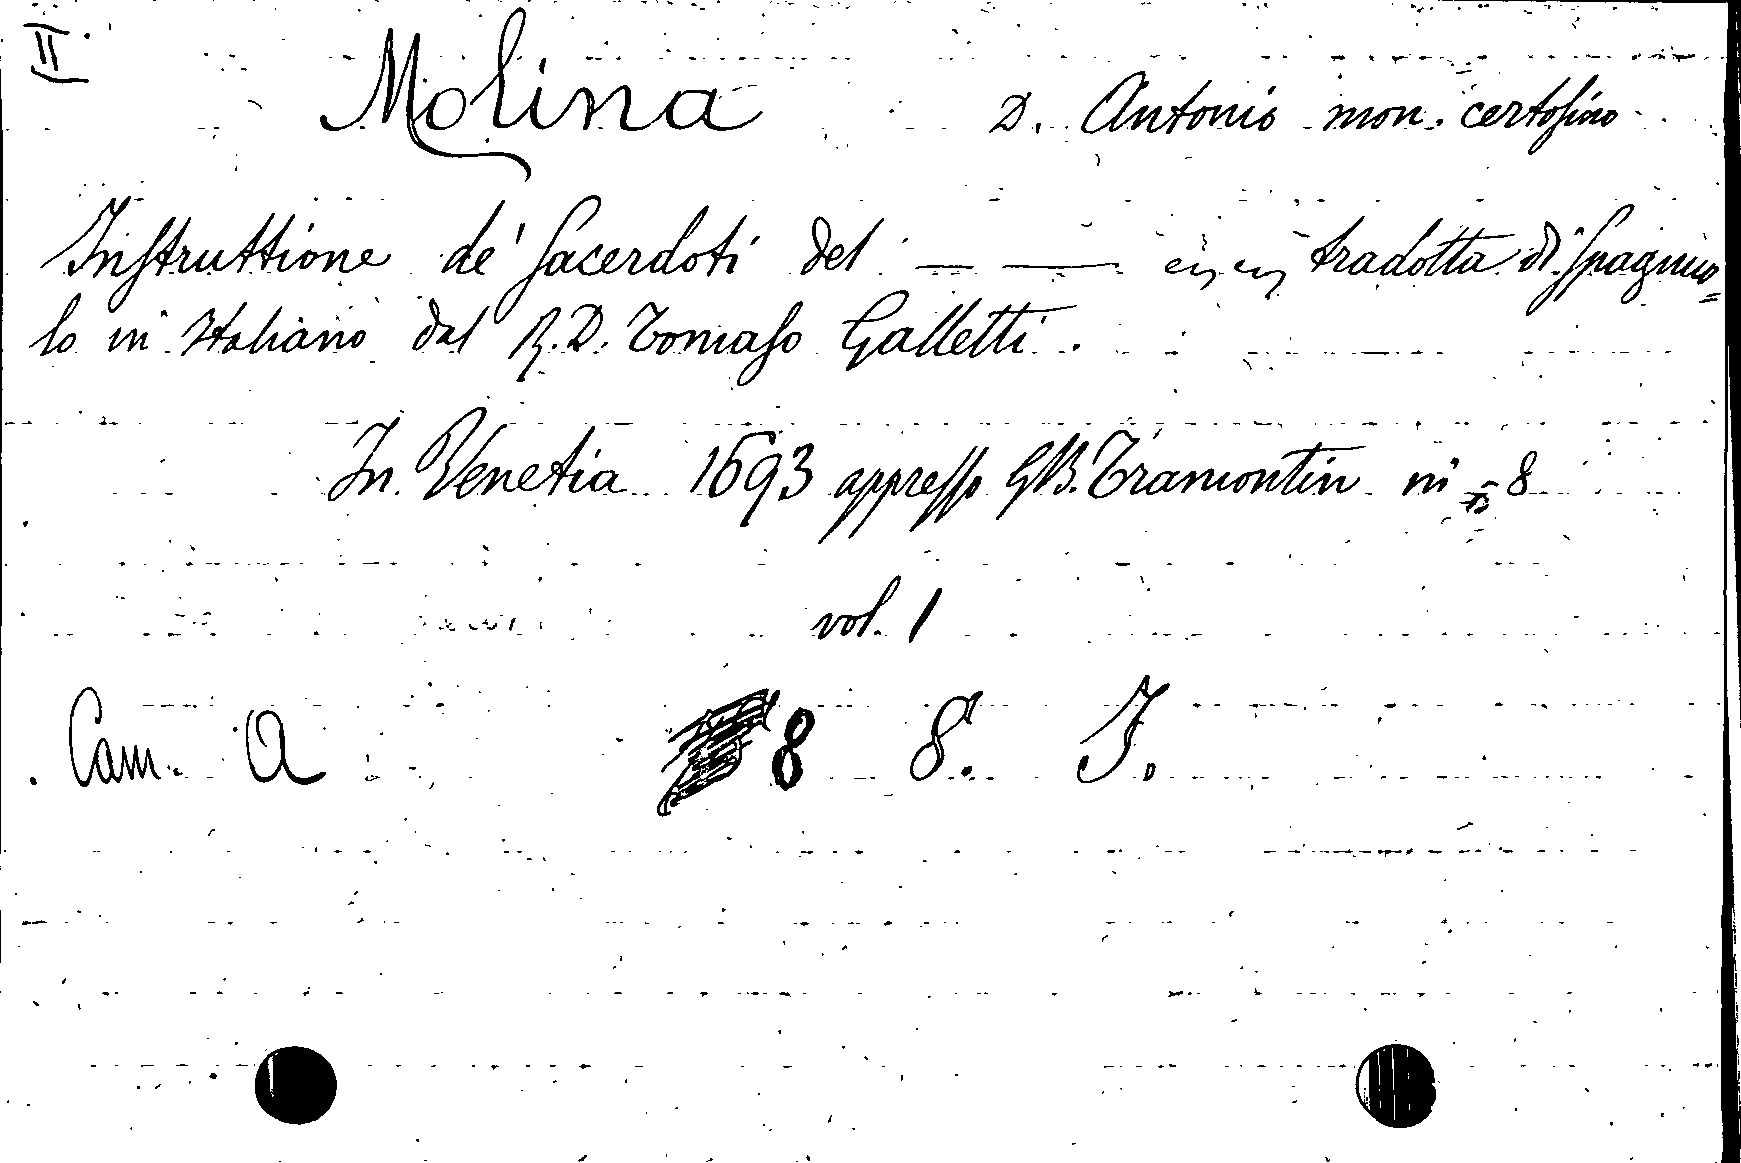 II.
Molina D. Antonio mon. certosino
Instruttione de' Sacerdoti del — —— tradotta di Spagnuo=
lo in Italiano dal R.D. Tomaso Galletti.
In Venetia 1693 appresso GB. Tramontin in 8
vol. 1
Cam. A 8 8. I.